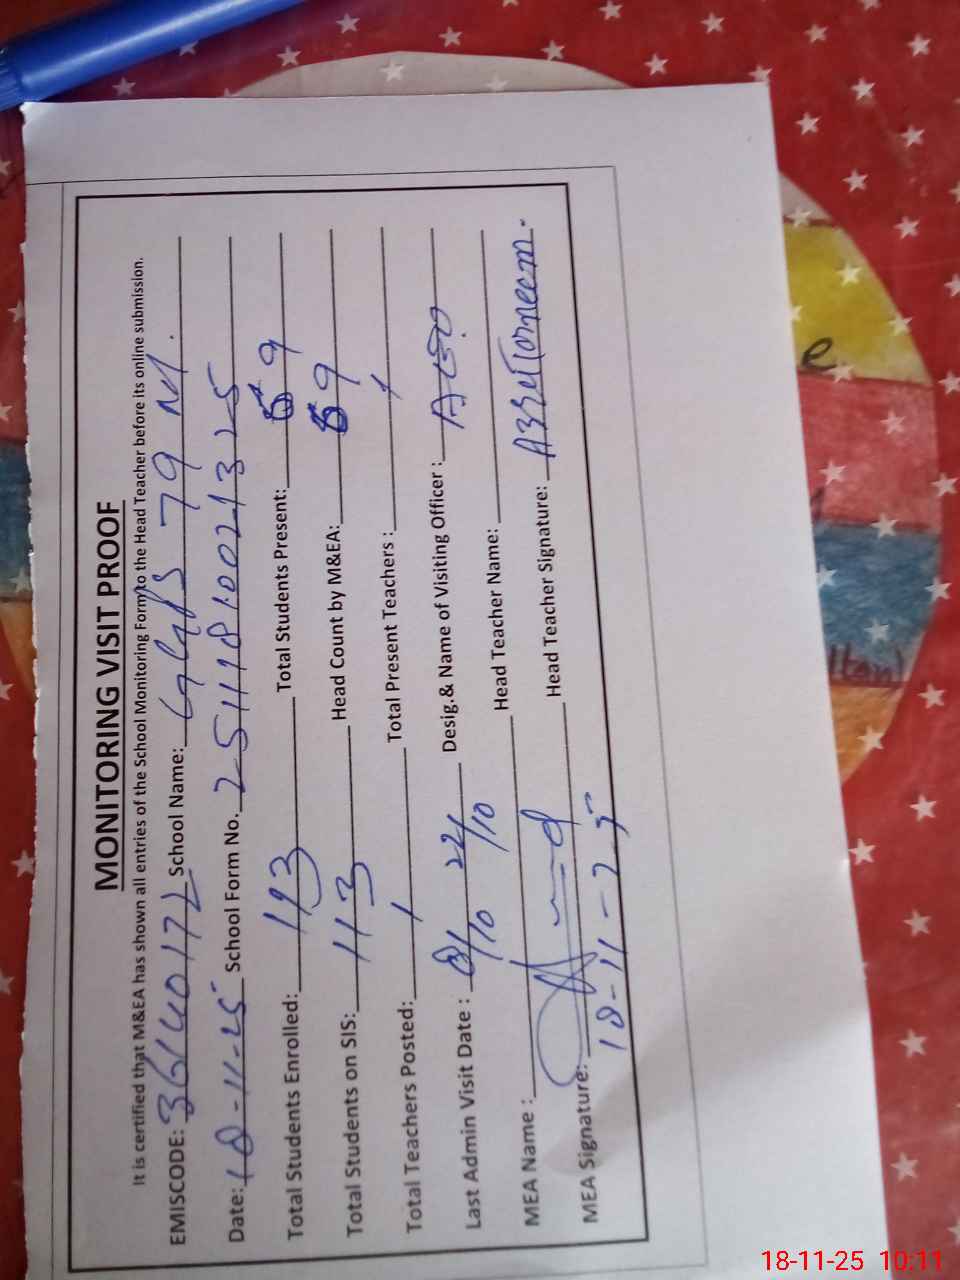 MONITORING VISIT PROOF
It is certified that M&EA has shown all entries of the School Monitoring Form to the Head Teacher before its online submission.
EMISCODE: 36140172 School Name: GGPS 79 M.
Date: 18-11-25 School Form No. 25111810021325
Total Students Enrolled: 113 Total Students Present: 59
Total Students on SIS: 113 Head Count by M&EA: 59
Total Teachers Posted: 1 Total Present Teachers : 1
Last Admin Visit Date : 8/10 22/10 Desig.& Name of Visiting Officer :
MEA Name : Head Teacher Name:
MEA Signature: Head Teacher Signature:
18-11-25
e
18-11-25 10:11